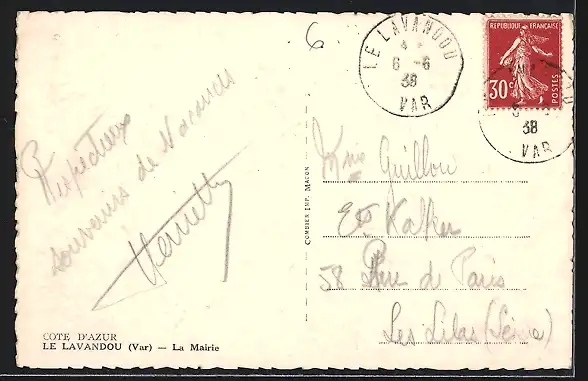 6
LE LAVANDOU
6 -6
38
VAR
REPUBLIQUE FRANÇAISE
30c
POSTES
38
VAR
Respectueux
souvenirs de Vacances
Guillou
Et Kalker
58 Rue de Paris
Les Lilas (Seine)
COMBIER IMP. MACON
COTE D'AZUR
LE LAVANDOU (Var) — La Mairie